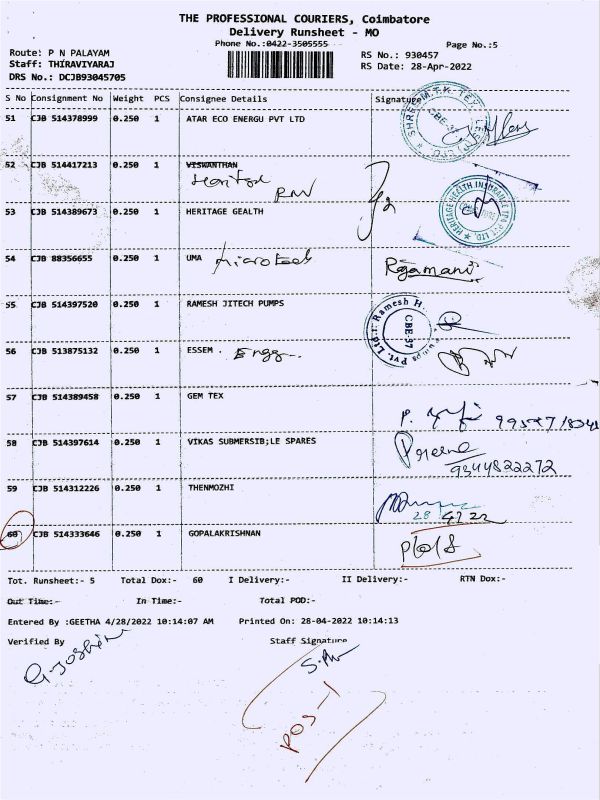 THE PROFESSIONAL COURIERS, Coimbatore
Delivery Runsheet - MO
Phone No.:0422-3505555
Page No.:5
Route: P N PALAYAM
RS No.: 930457
Staff: THIRAVIYARAJ
RS Date: 28-Apr-2022
DRS No.: DCJB93045705
S No Consignment No Weight PCS Consignee Details Signature
51 CJB 514378999 0.250 1 ATAR ECO ENERGU PVT LTD
52 CJB 514417213 0.250 1 VISWANTHAN
53 CJB 514389673 0.250 1 HERITAGE GEALTH
54 CJB 88356655 0.250 1 UMA Microtech Rajamani
55 CJB 514397520 0.250 1 RAMESH JITECH PUMPS
56 CJB 513875132 0.250 1 ESSEM . Engg.
57 CJB 514389458 0.250 1 GEM TEX
58 CJB 514397614 0.250 1 VIKAS SUBMERSIB;LE SPARES
9344822272
59 CJB 514312226 0.250 1 THENMOZHI
60 CJB 514333646 0.250 1 GOPALAKRISHNAN
Tot. Runsheet:- 5 Total Dox:- 60 I Delivery:- II Delivery:- RTN Dox:-
Out Time:- In Time:- Total POD:-
Entered By :GEETHA 4/28/2022 10:14:07 AM Printed On: 28-04-2022 10:14:13
Verified By Staff Signature